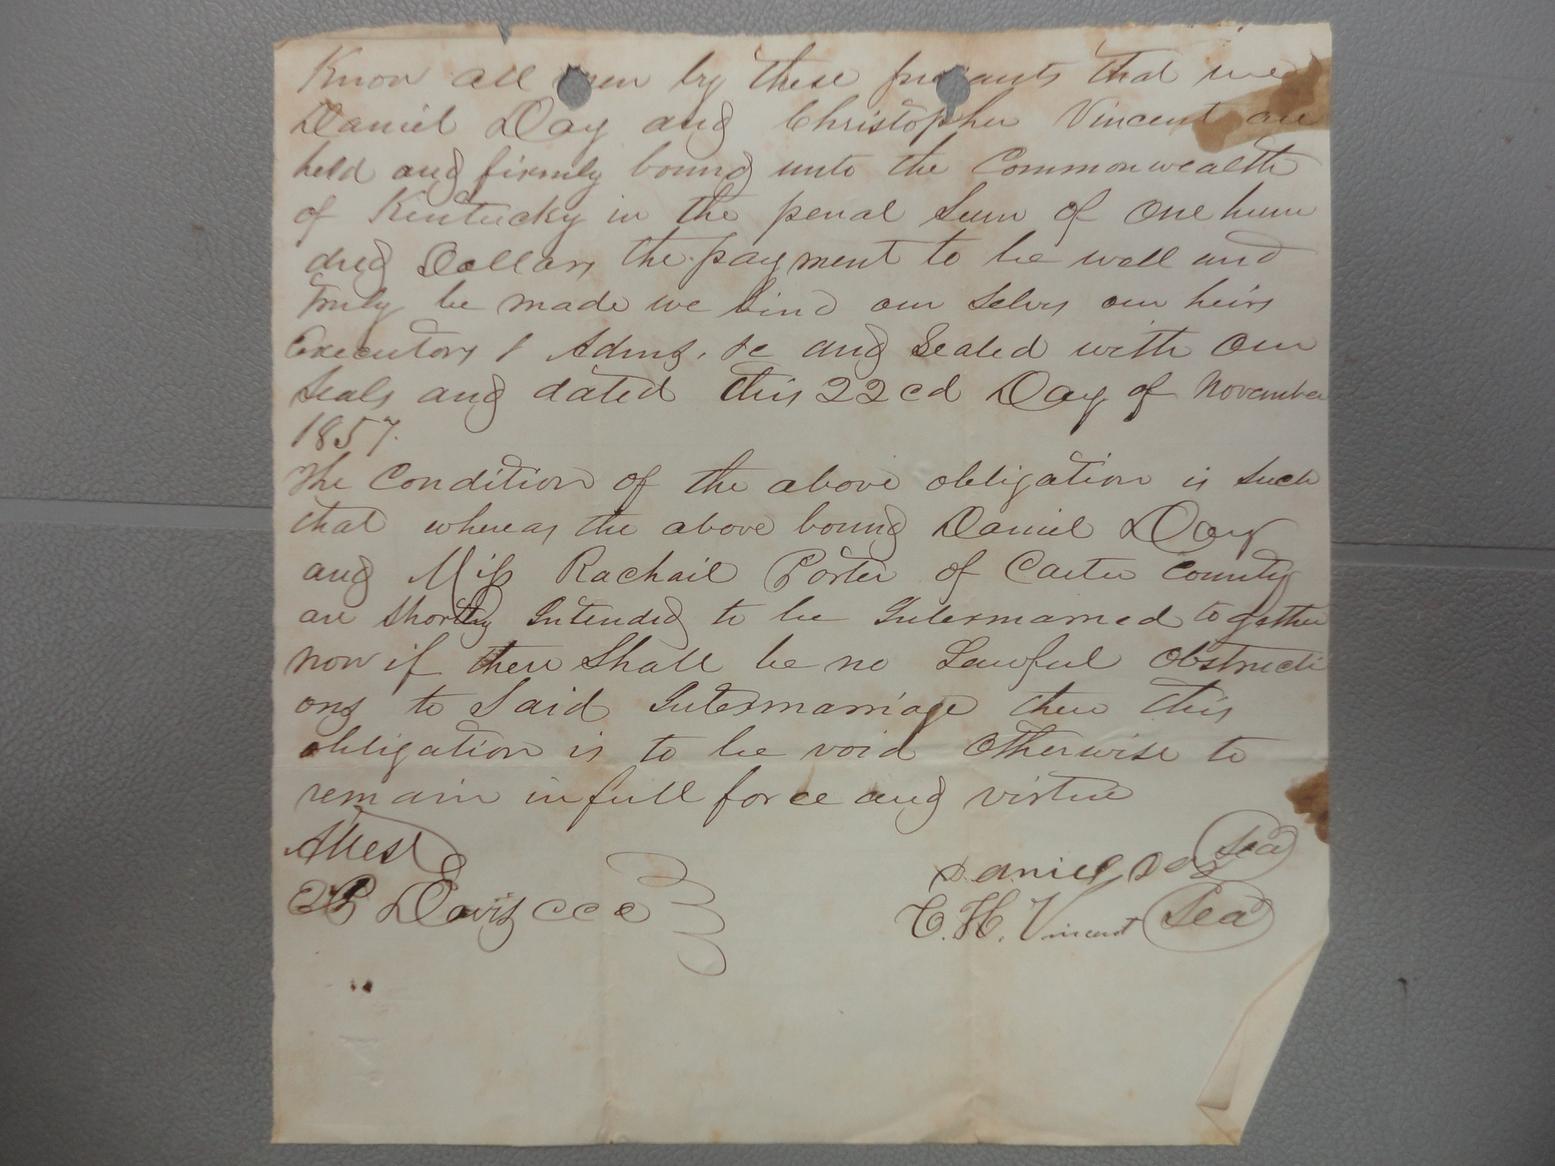 Know all men by these presants that we
Daniel Day and Christopher Vincent are
held and firmly bound unto the Commonwealth
of Kentucky in the penal Sum of one hun
dred Dollars the payment to be well and
truly be made we bind our selvs our heirs
Executors & Adms. &c and Sealed with our
Seals and dated this 22cd Day of November
1857.
The Condition of the above obligation is such
that whereas the above bound Daniel Day
and Miss Rachail Porter of Carter County
are shortly Intended to be Intermarried together
now if there Shall be no Lawful obstructi
ons to Said Intermarriage then this
obligation is to be void otherwise to
remain in full force and virtue
Attest
Daniel Day Seal
Davis CCC
C. H. Vincent Seal